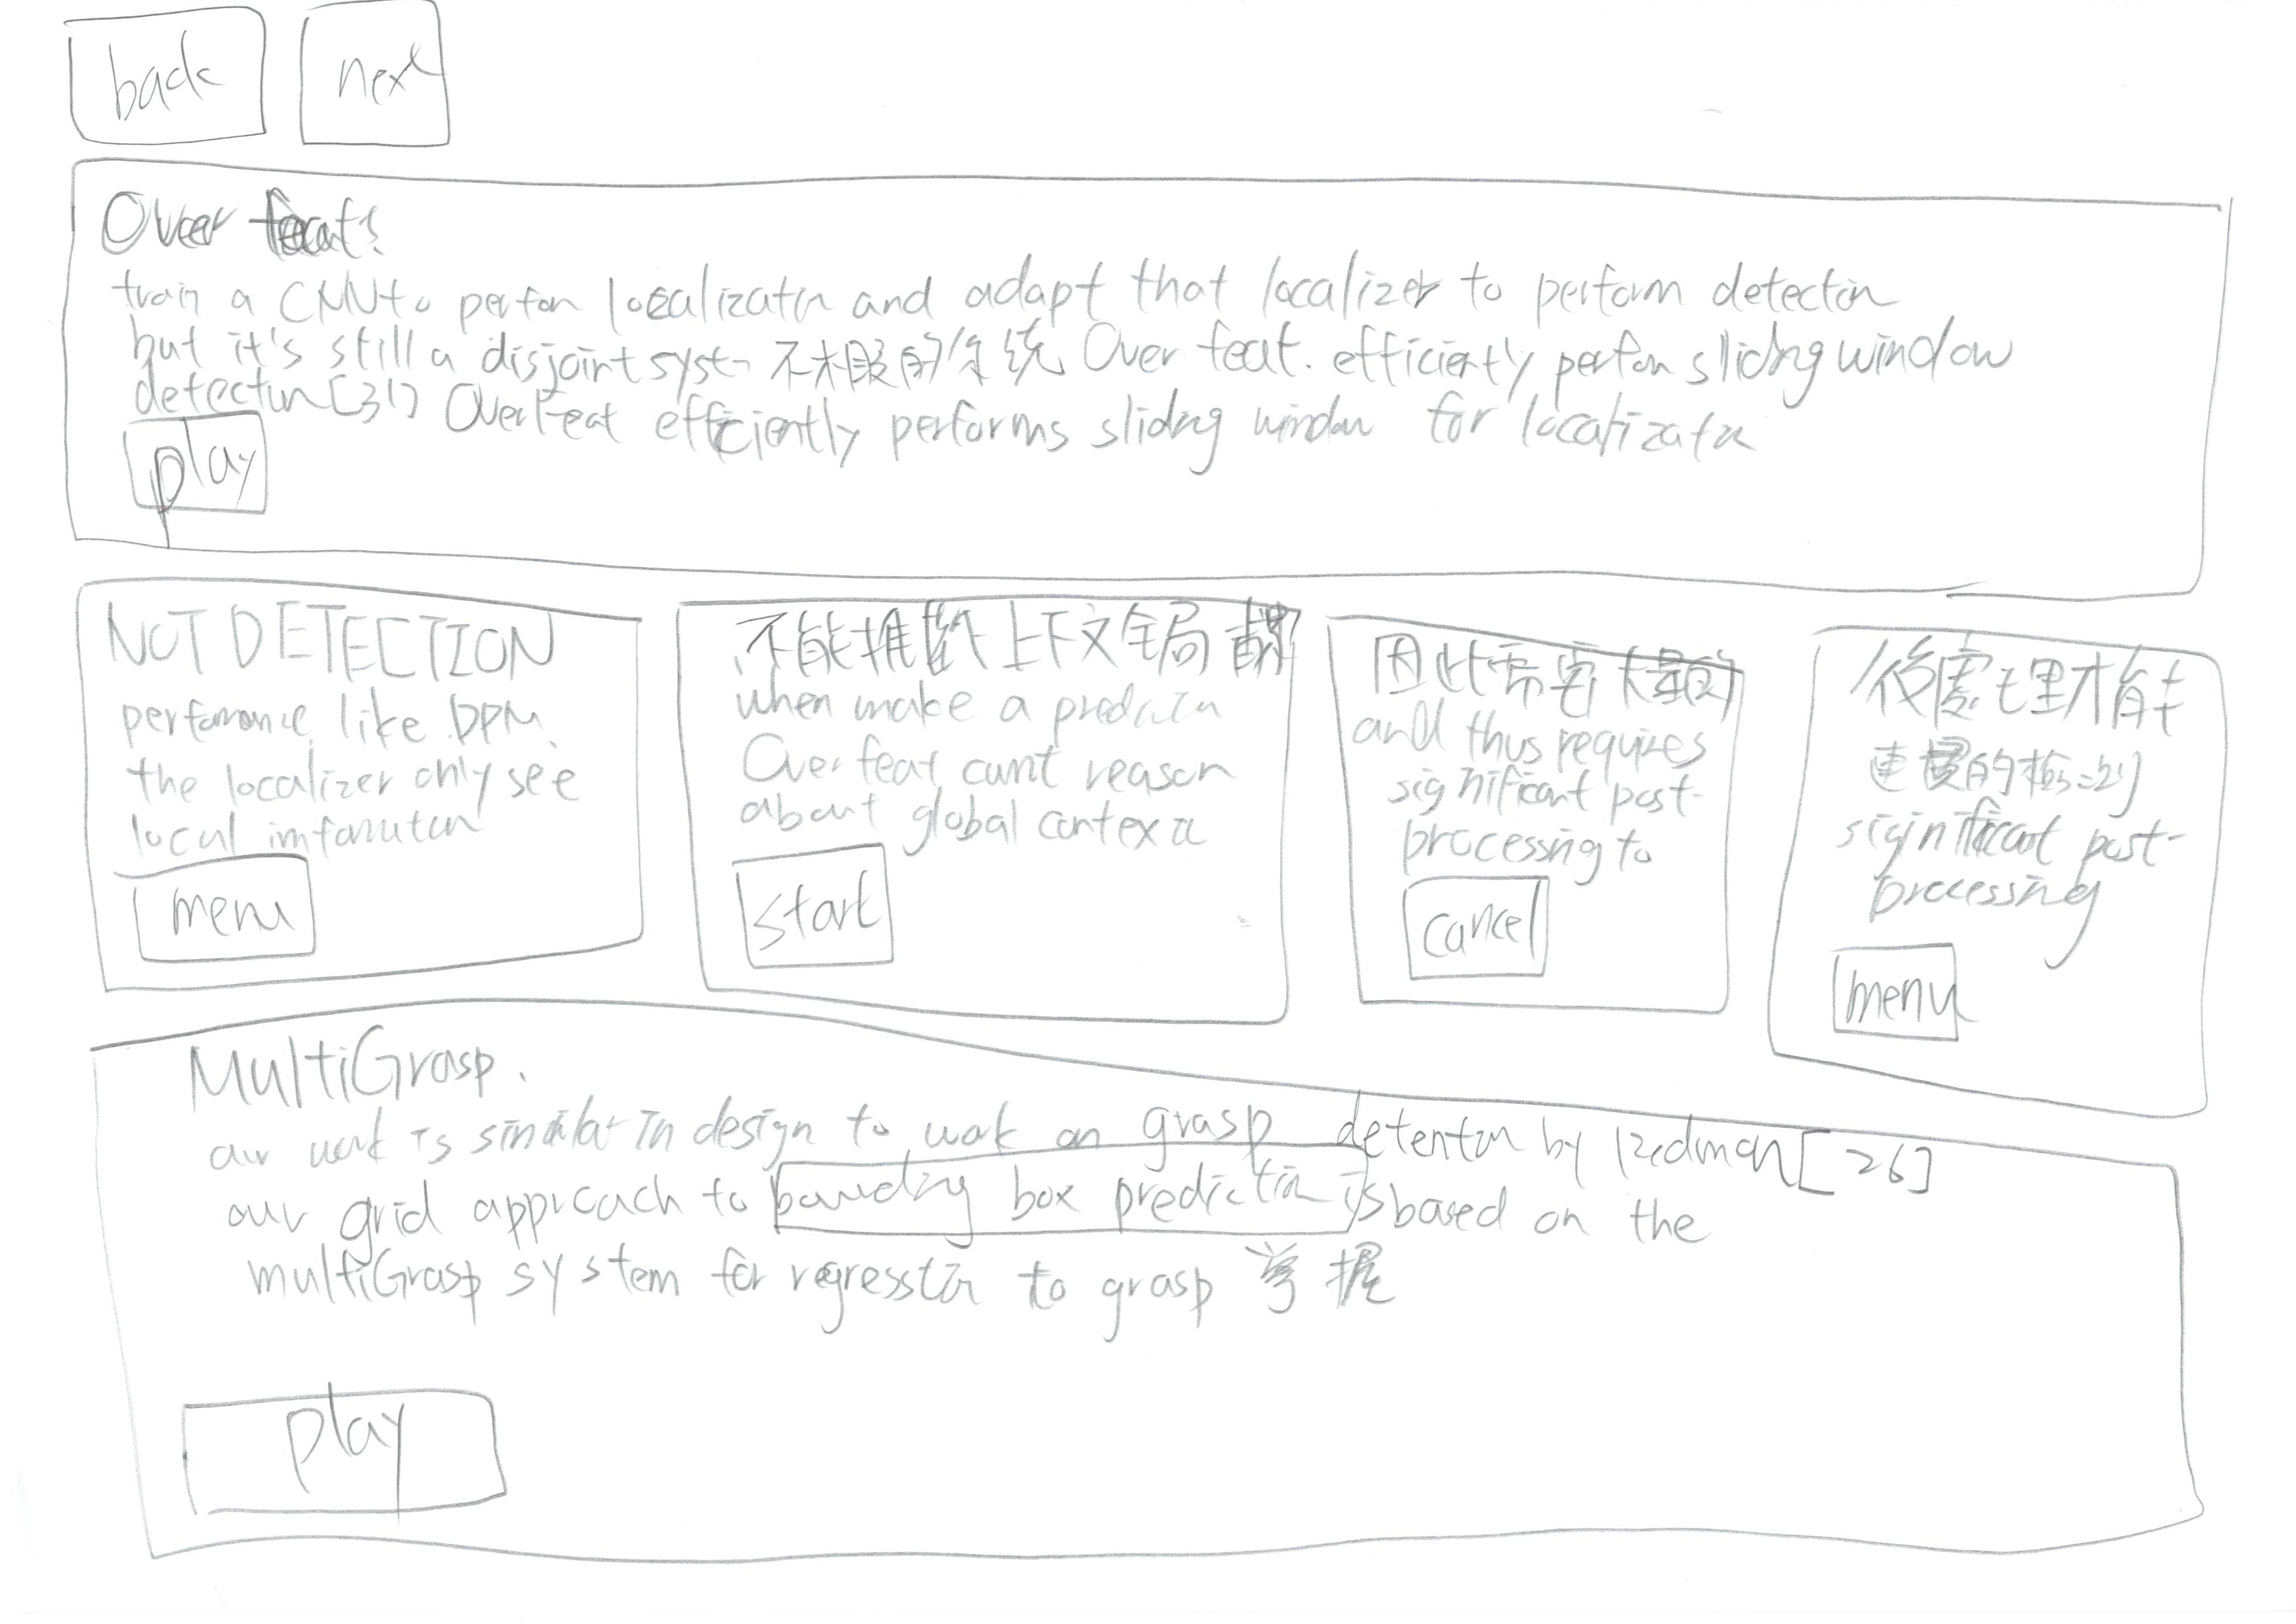 back
next
Over feat:
train a CNN to perfom localizatin and adapt that localizer to perform detectin
but it's still a disjoint syst- 不相股的系统 Over feat. efficienty perfom sliding window
detectin [31] OverFeat efficiently performs sliding window for localizatin
play
NOT DETECTION
perfomance like DPM.
the localizer only see
local imfomation
menu
不能推斷上下文全局
when make a predictin
Over feat can't reason
about global context
start
因此需害大量的
and thus requires
significant post-
processing to
cancel
後處理才能
連貫的檢測
siginificant post-
processing
menu
MultiGrasp.
our work is similar in design to work on grasp detention by Redmon [26]
our grid approach to bounding box predictin is based on the
multiGrasp system for regresstin to grasp 掌握
play